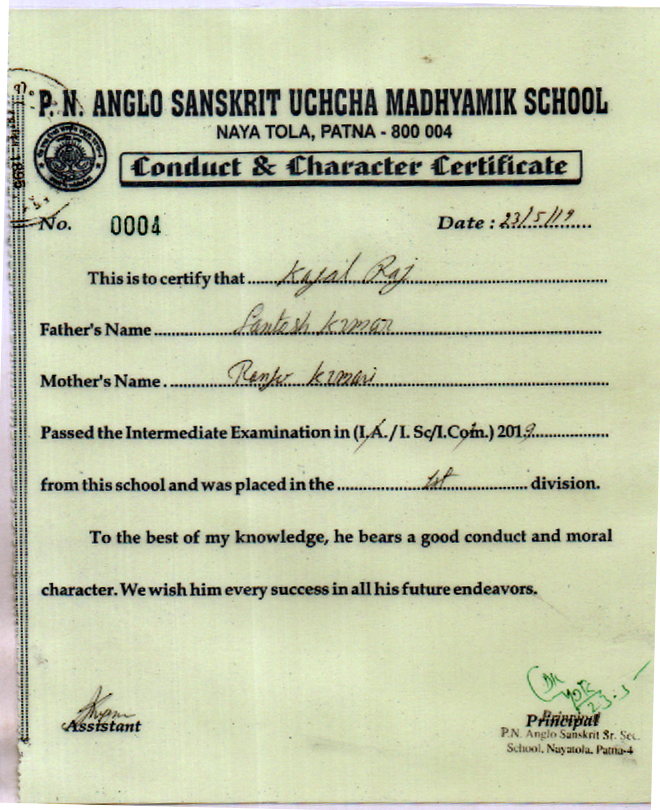 P. N. ANGLO SANSKRIT UCHCHA MADHYAMIK SCHOOL
NAYA TOLA, PATNA - 800 004
Conduct & Character Certificate
No. 0004 Date : 23/5/19
This is to certify that Kajal Raj
Father's Name Santosh Kumar
Mother's Name Ranju Kumari
Passed the Intermediate Examination in (I.A./I. Sc/I.Com.) 2019
from this school and was placed in the 1st division.
To the best of my knowledge, he bears a good conduct and moral
character. We wish him every success in all his future endeavors.
Assistant
Principal
Principal
P.N. Anglo Sanskrit Sr. Sec.
School, Nayatola, Patna-4